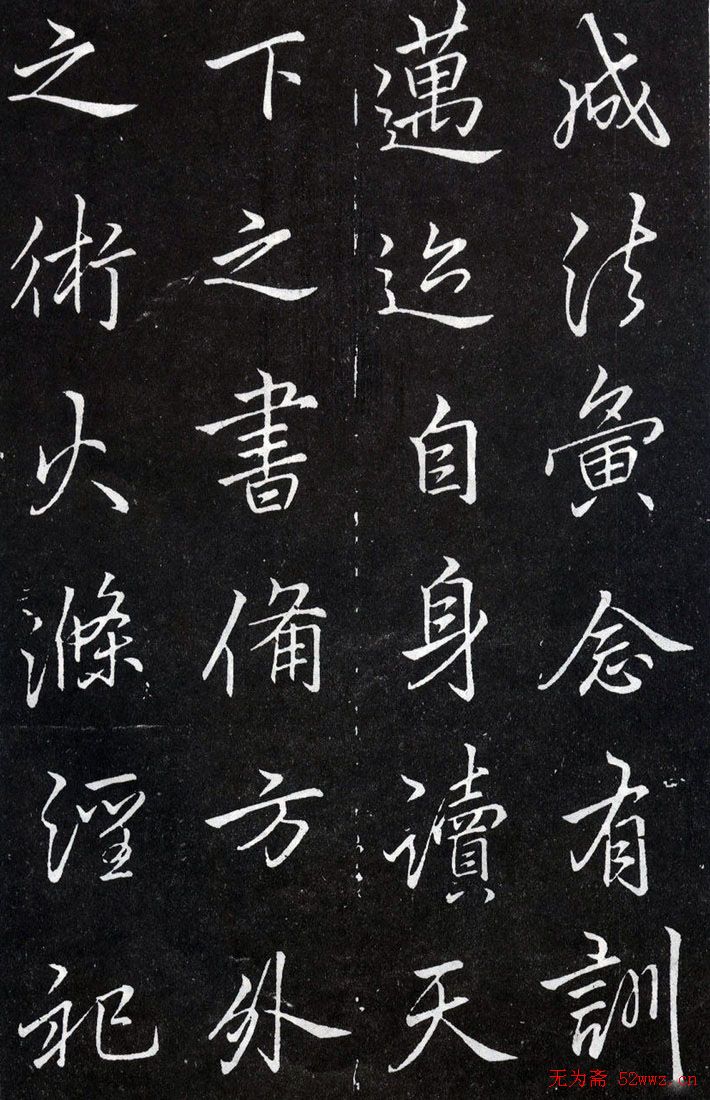 成法夤念有訓
邁迹自身讀天
下之書備方外
之術火滌淫祀
无为斋 52wwz.cn